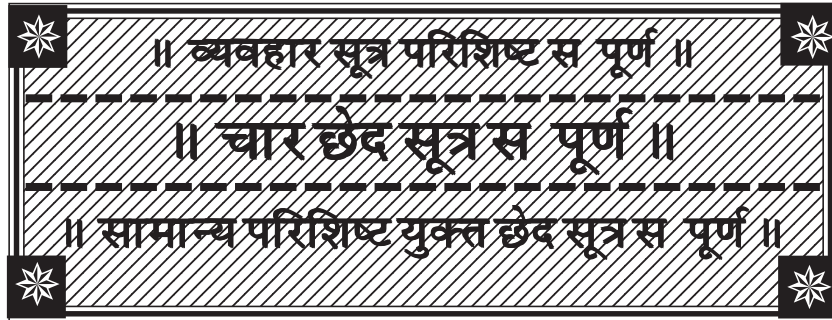 ॥ व्यवहार सूत्र परिशिष्ट स पूर्ण ॥
॥ चार छेद सूत्र स पूर्ण ॥
॥ सामान्य परिशिष्ट युक्त छेद सूत्र स पूर्ण ॥